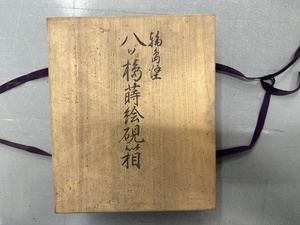 輪島塗
八ッ橋蒔絵硯箱